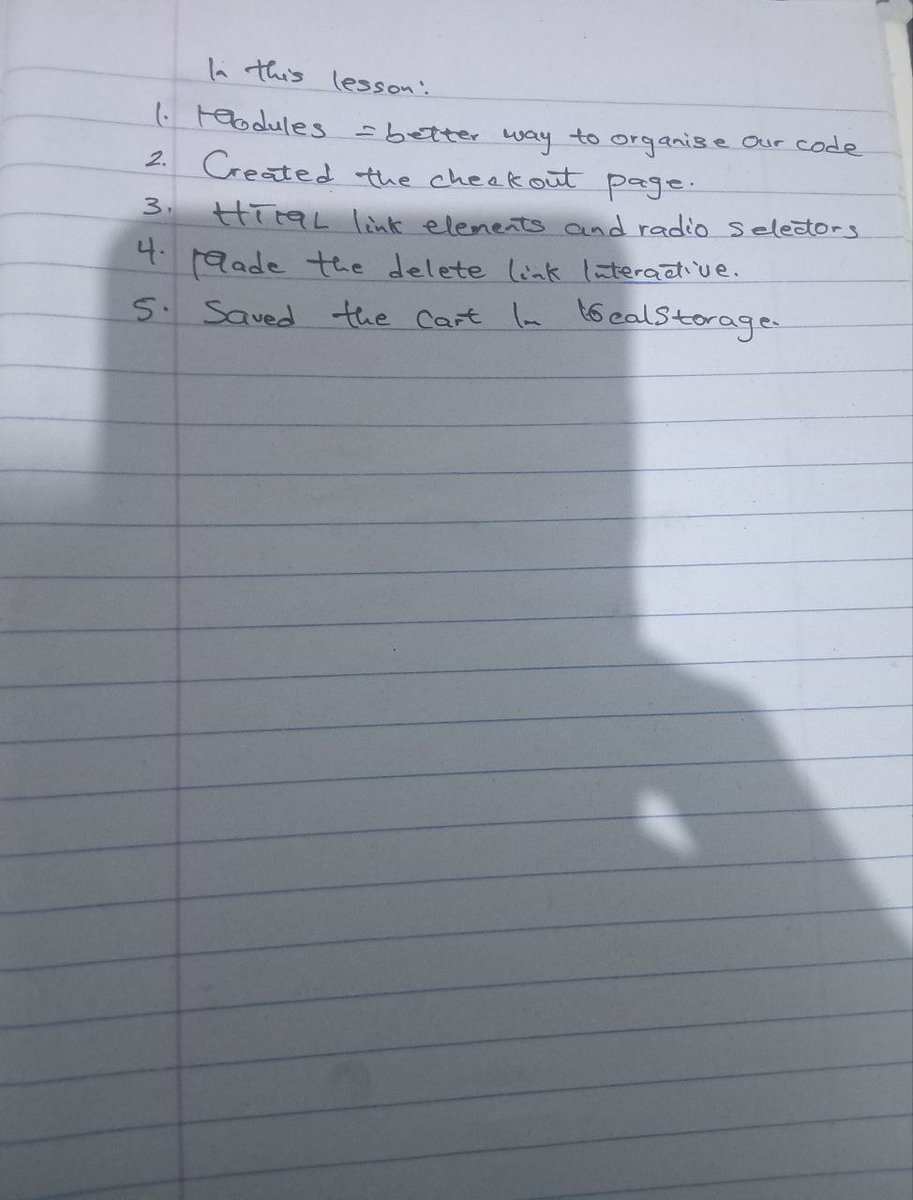 In this lesson:
1. Modules = better way to organise our code
2. Created the checkout page.
3. HTML link elements and radio selectors
4. Made the delete link Interactive.
5. Saved the cart In localStorage.